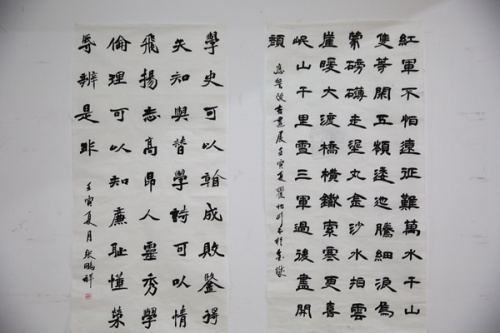 紅軍不怕遠征難萬水千山
隻等閑五嶺逶迤騰細浪烏
蒙磅礴走泥丸金沙水拍雲
崖暖大渡橋橫鐵索寒更喜
岷山千里雪三軍過後盡開
顏
書畫展壬寅夏
學史可以看成敗鑒得
失知興替學詩可以情
飛揚志高昂人靈秀學
倫理可以知廉耻懂榮
辱辨是非
壬寅夏月張鵬祥